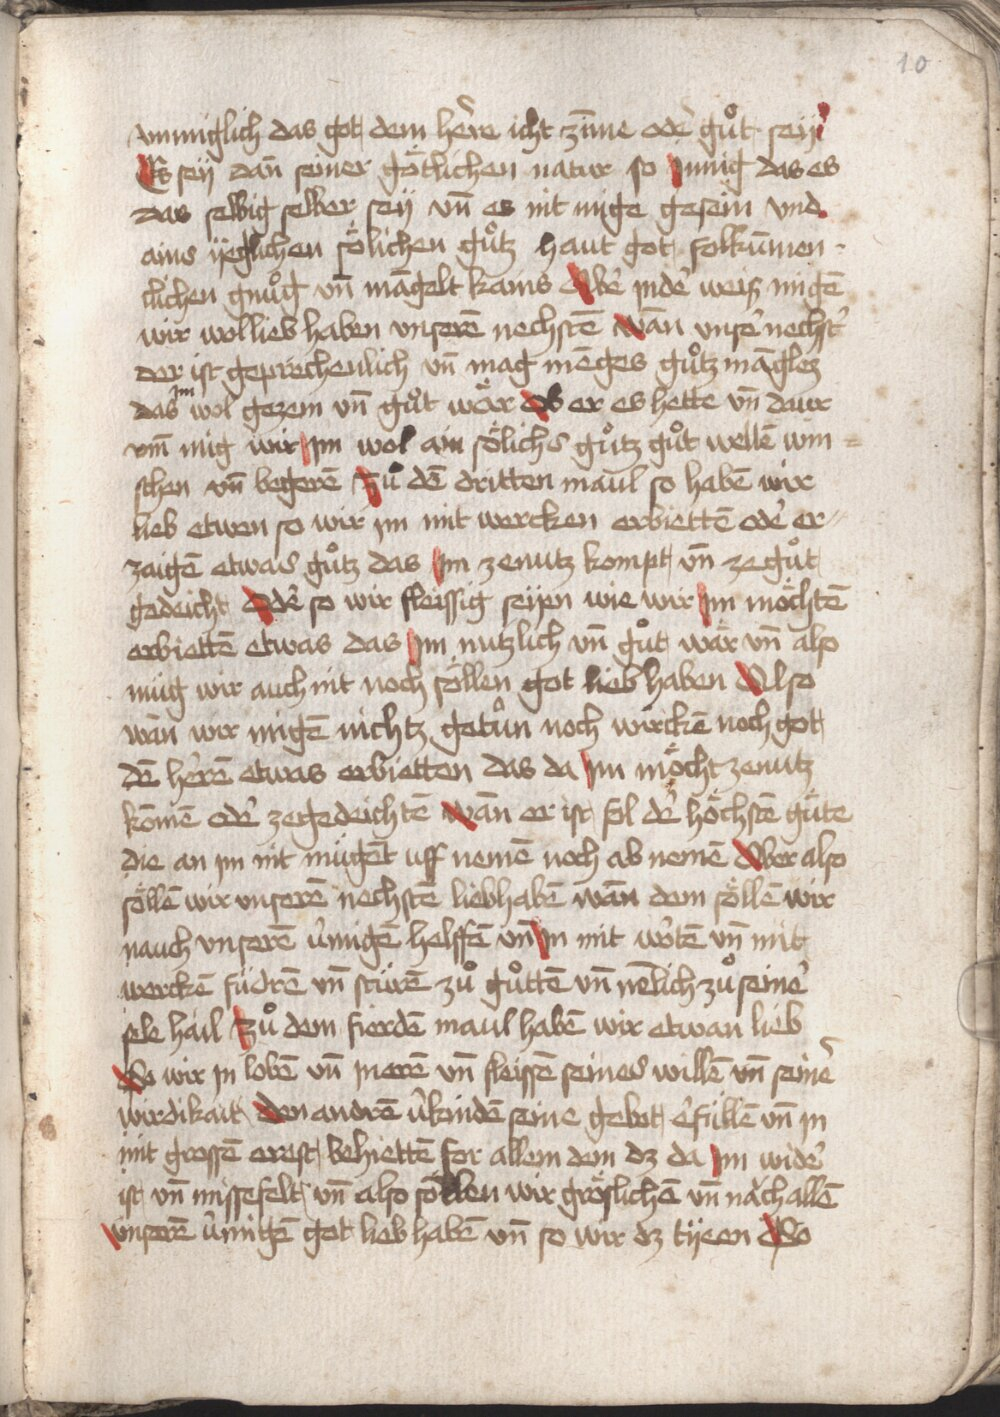 10
vnmüglich das got dem herre icht zīme oder guͦt seÿ
Es seÿ dan̄ seiner götlichen natur so Innig das es
das selbig selber seÿ vn̄ es nit mige gesein vnd
ains ÿeglichen sölichen guͦtz haut got folkūmen
clichen gnuͦg vn̄ māgelt kains Aber in der weiß migē
wir wol lieb haben vnserē nechstē wan̄ vnser nechst
der ist geprechenlich vn̄ mag mēges guͦtz māglez
das im wol gezem vn̄ guͦt wär ob er es hette vn̄ daur
vm̄ mig wir Im wol ain sölichs guͦtz guͦt wellē win
schen vn̄ begerē Zuͦ dē dritten maul so habē wir
lieb etwen so wir im mit wercken erbiettē oder er
zaigē etwas guͦtz das Im ze nutz kompt vn̄ ze guͦt
gedeicht Oder so wir fleissig seÿen wie wir Im möchtē
erbiettē etwas das Im nutzlich vn̄ guͦt wär vn̄ also
müg wir auch nit noch söllen got lieb haben Also
wan̄ wir migē nichtz getuͦn noch wirckē noch got
dē herē etwas erbietten das da Im möcht ze nutz
kōmē oder ze gedeichtē wan̄ er ist fol der höchstē güte
die an im nit mügēt uff nemē noch ab nemē Aber also
söllē wir vnserē nechstē lieb habē wan̄ dem söllē wir
nauch vnserē v̓migē helffē vn̄ In mit wortē vn̄ mit
werckē füdrē vn̄ stürē zuͦ guͦttē vn̄ nēlich zuͦ seiner
sele hail Zuͦ dem fierdē maul habē wir etwan lieb
So wir in lobē vn̄ in erē vn̄ fleissē seines willē vn̄ seiner
wirdikait den andrē v̓kindē seine gebot erfüllē vn̄ in
mit grossē ernst behiettē for allem dem dz da Im wider
ist vn̄ missefelt vn̄ also söllen wir gröslichē vn̄ näch allē
vnserē v̓migē got lieb habē vn̄ so wir dz tÿeen So